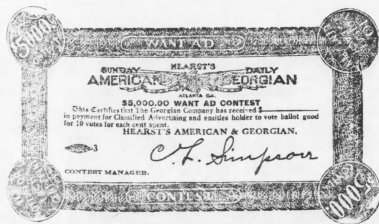 5000
WANT AD
HEARST'S
SUNDAY DAILY
AMERICAN GEORGIAN
ATLANTA GA.
$5,000.00 WANT AD CONTEST
This Certifies that The Georgian Company has received $
in payment for Classified Advertising and entitles holder to vote ballot good
for 10 votes for each cent spent.
HEARST'S AMERICAN & GEORGIAN,
3
C. L. Simpson
CONTEST MANAGER.
CONTEST